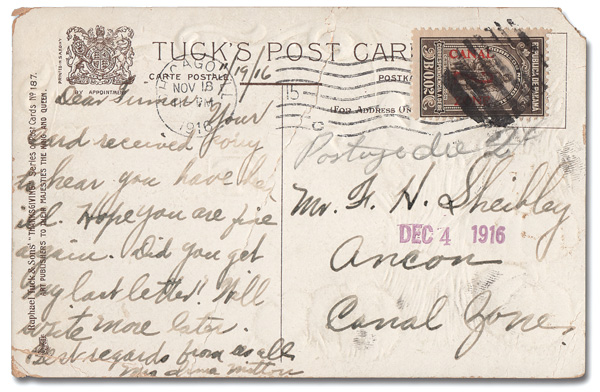 TUCK'S POST CARD
CARTE POSTALE
POSTK
(FOR ADDRESS ON
BY APPOINTMENT
PRINTED IN SAXONY
Raphael Tuck & Sons' "THANKSGIVING" Series of Post Cards No 187.
ART PUBLISHERS TO THEIR MAJESTIES THE KING AND QUEEN.
CHICAGO, ILL
NOV 18
PM
1916
11/19/16
Dear Your
card received sorry
to hear you have been
ill. Hope you are fine
again. Did you get
my last letter? Will
write more later.
Best regards from us all
Mrs
REPUBLICA DE PANAMA
CANAL
B.002
Postage due 2¢
Mr. F. H. Sheibley
DEC 4 1916
Ancon
Canal Zone.